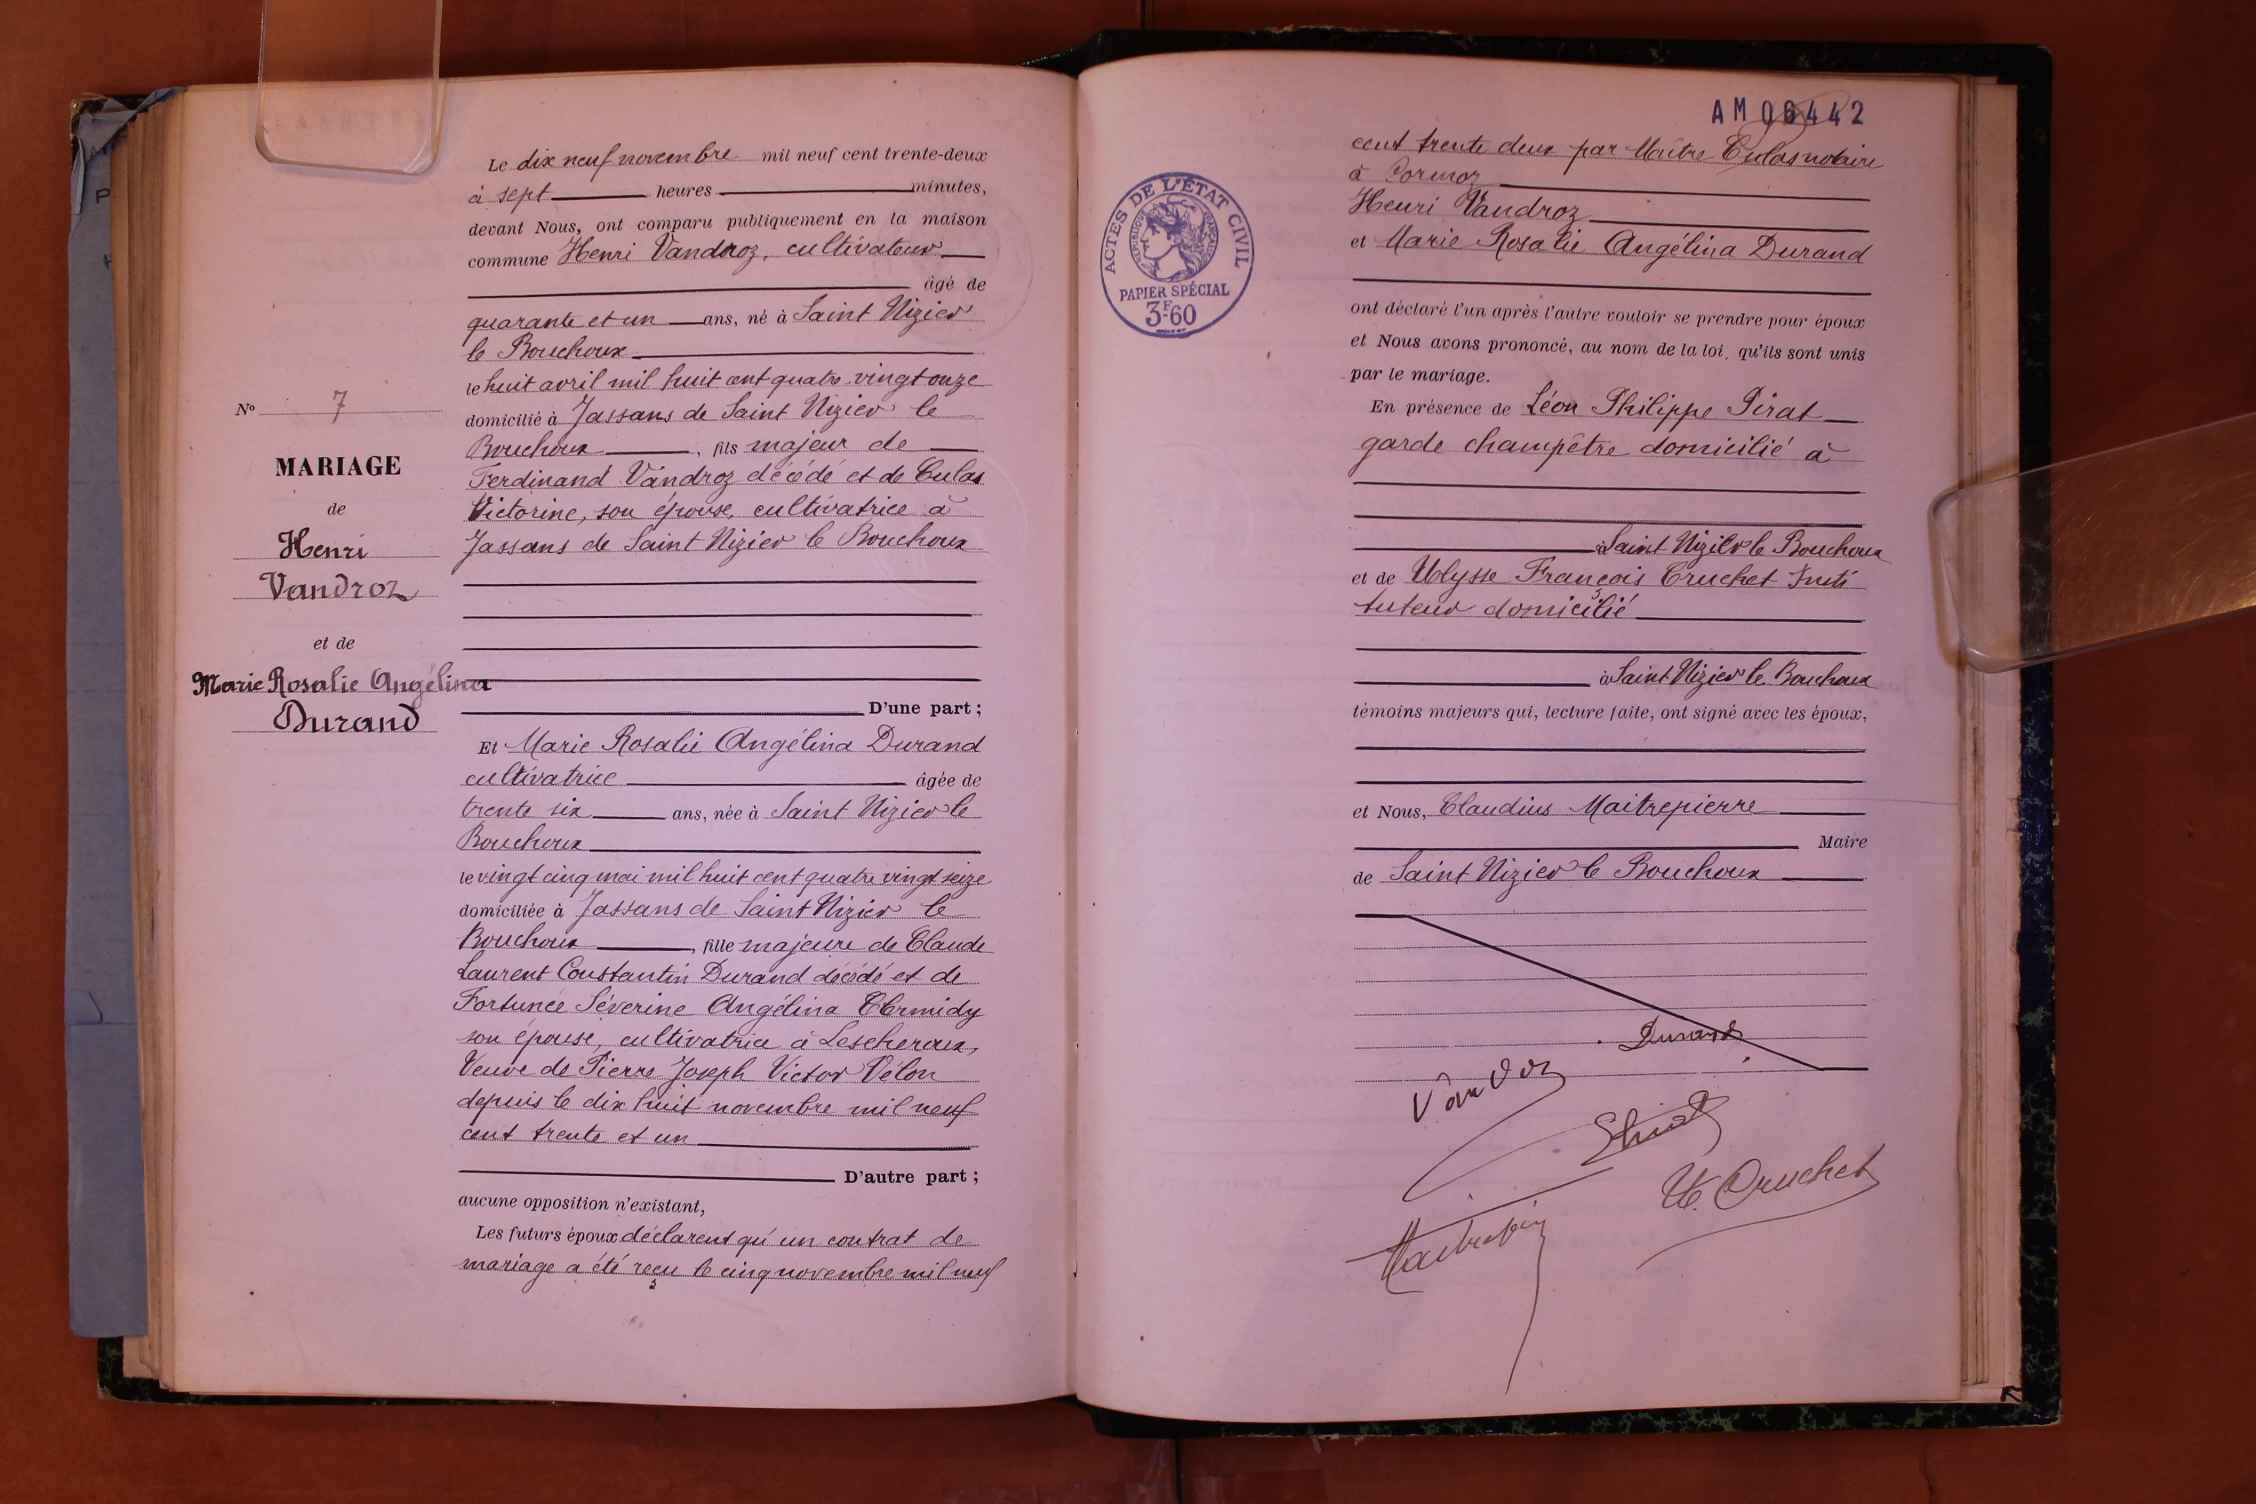 Le dix neuf novembre mil neuf cent trente-deux
à sept heures minutes,
devant Nous, ont comparu publiquement en la maison
commune Henri Vandroz, cultivateur
âgé de
quarante et un ans, né à Saint Nizier
le Bouchoux
le huit avril mil huit cent quatre vingt onze
domicilié à Jassans de Saint Nizier le
Bouchoux, fils majeur de
Ferdinand Vandroz décédé et de Culas
Victorine, son épouse, cultivatrice à
Jassans de Saint Nizier le Bouchoux
D'une part ;
Et Marie Rosalie Angélina Durand
cultivatrice âgée de
trente six ans, née à Saint Nizier le
Bouchoux
le vingt cinq mai mil huit cent quatre vingt seize
domiciliée à Jassans de Saint Nizier le
Bouchoux, fille majeure de Claude
Laurent Constantin Durand décédé et de
Fortunée Séverine Angélina
son épouse, cultivatrice à Lescheroux,
Veuve de Pierre Joseph Victor Vélon
depuis le dix huit novembre mil neuf
cent trente et un
D'autre part ;
aucune opposition n'existant,
Les futurs époux déclarent qu'un contrat de
mariage a été reçu le cinq novembre mil neuf
No 7
MARIAGE
de
Henri
Vandroz
et de
Marie Rosalie Angélina
Durand
AM 06442
ACTES DE L'ÉTAT CIVIL
RÉPUBLIQUE FRANÇAISE
PAPIER SPÉCIAL
3F60
cent trente deux par Maître Culas notaire
à Cormoz
Henri Vandroz
et Marie Rosalie Angélina Durand
ont déclaré l'un après l'autre vouloir se prendre pour époux
et Nous avons prononcé, au nom de la loi, qu'ils sont unis
par le mariage.
En présence de Léon Philippe Pirat
garde champêtre domicilié à
à Saint Nizier le Bouchoux
et de Ulysse François Cruchet Insti
tuteur domicilié
à Saint Nizier le Bouchoux
témoins majeurs qui, lecture faite, ont signé avec les époux,
et Nous, Claudius Maitrepierre
Maire
de Saint Nizier le Bouchoux
Durand
Vandroz
U. Cruchet